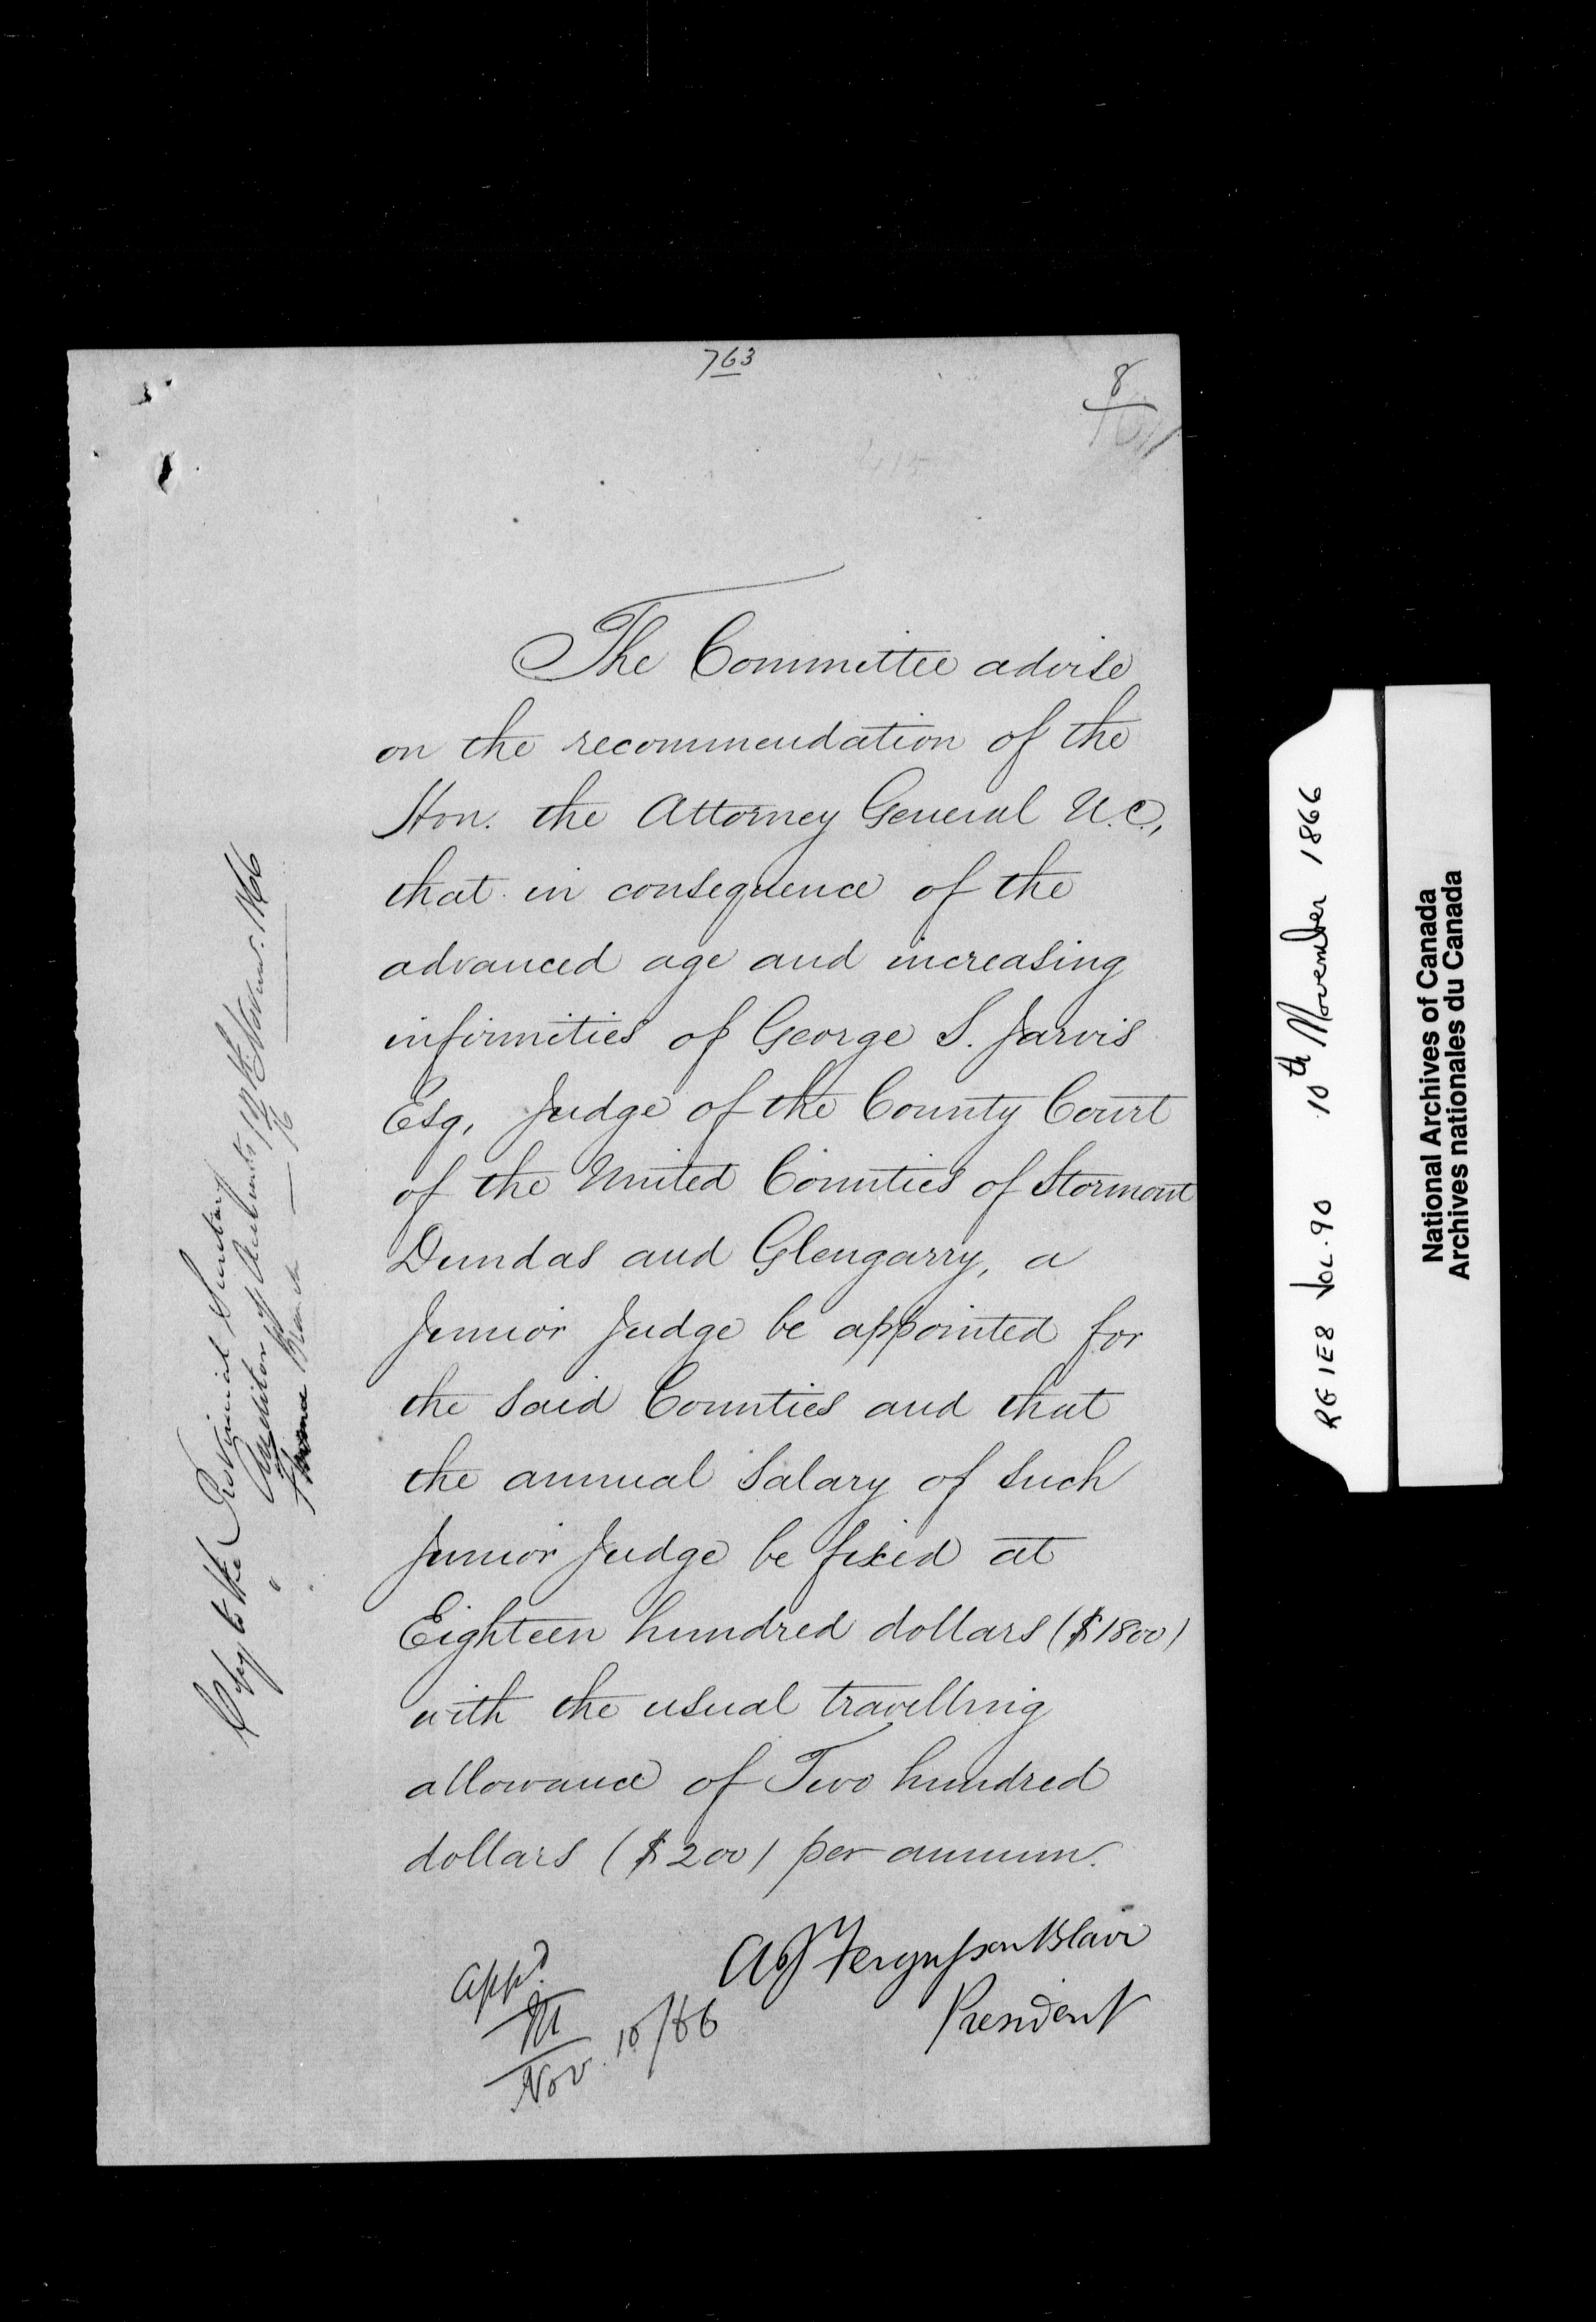 763
8
The Committee advise
on the recommendation of the
Hon. the Attorney General U.C.,
that in consequence of the
advanced age and increasing
infirmities of George S. Jarvis
Esq, Judge of the County Court
of the United Counties of Stormont
Dundas and Glengarry, a
Junior Judge be appointed for
the said Counties and that
the annual salary of such
Junior Judge be fixed at
Eighteen hundred dollars ($1800)
with the usual travelling
allowance of Two hundred
dollars ($200) per annum.
AJ Fergusson Blair
President
Appd.
M
Nov. 10/66
Copy to the Provincial Secretary
" Auditor of Accounts 12th Novr. 1866
" Finance Branch — 16
RG 1E8 Vol. 90 10th November 1866
National Archives of Canada
Archives nationales du Canada